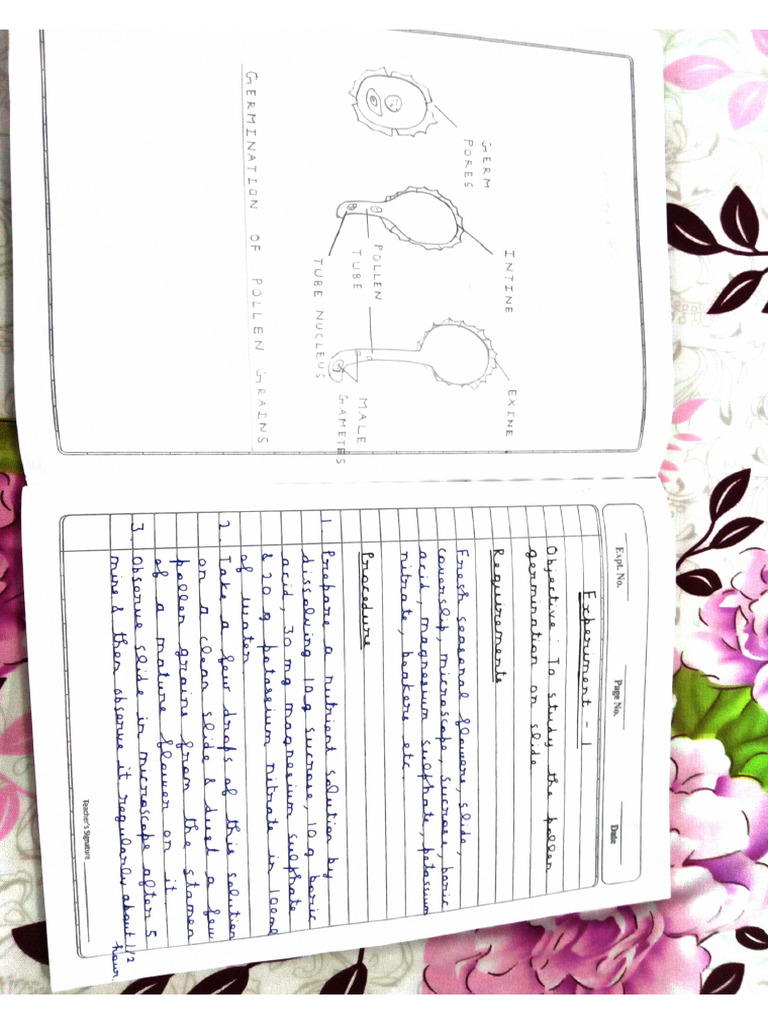 GERM
PORES
INTINE
EXINE
POLLEN
TUBE
TUBE NUCLEUS
MALE
GAMETES
GERMINATION OF POLLEN GRAINS
Expt. No.
Page No.
Date
Experiment - 1
Objective : To study the pollen
germination on slide
Requirements
Fresh seasonal flowers, slide,
coverslip, microscope, sucrose, boric
acid, magnesium sulphate, potassium
nitrate, beakers etc.
Procedure
1. Prepare a nutrient solution by
dissolving 10g sucrose, 10g boric
acid, 30 mg magnesium sulphate
& 20 g potassium nitrate in 100ml
of water.
2. Take a few drops of this solution
on a clean slide & dust a few
pollen grains from the stamen
of a mature flower on it
3. Observe slide in microscope after 5
mins & then observe it regularly about 1/2
hour
Teacher's Signature